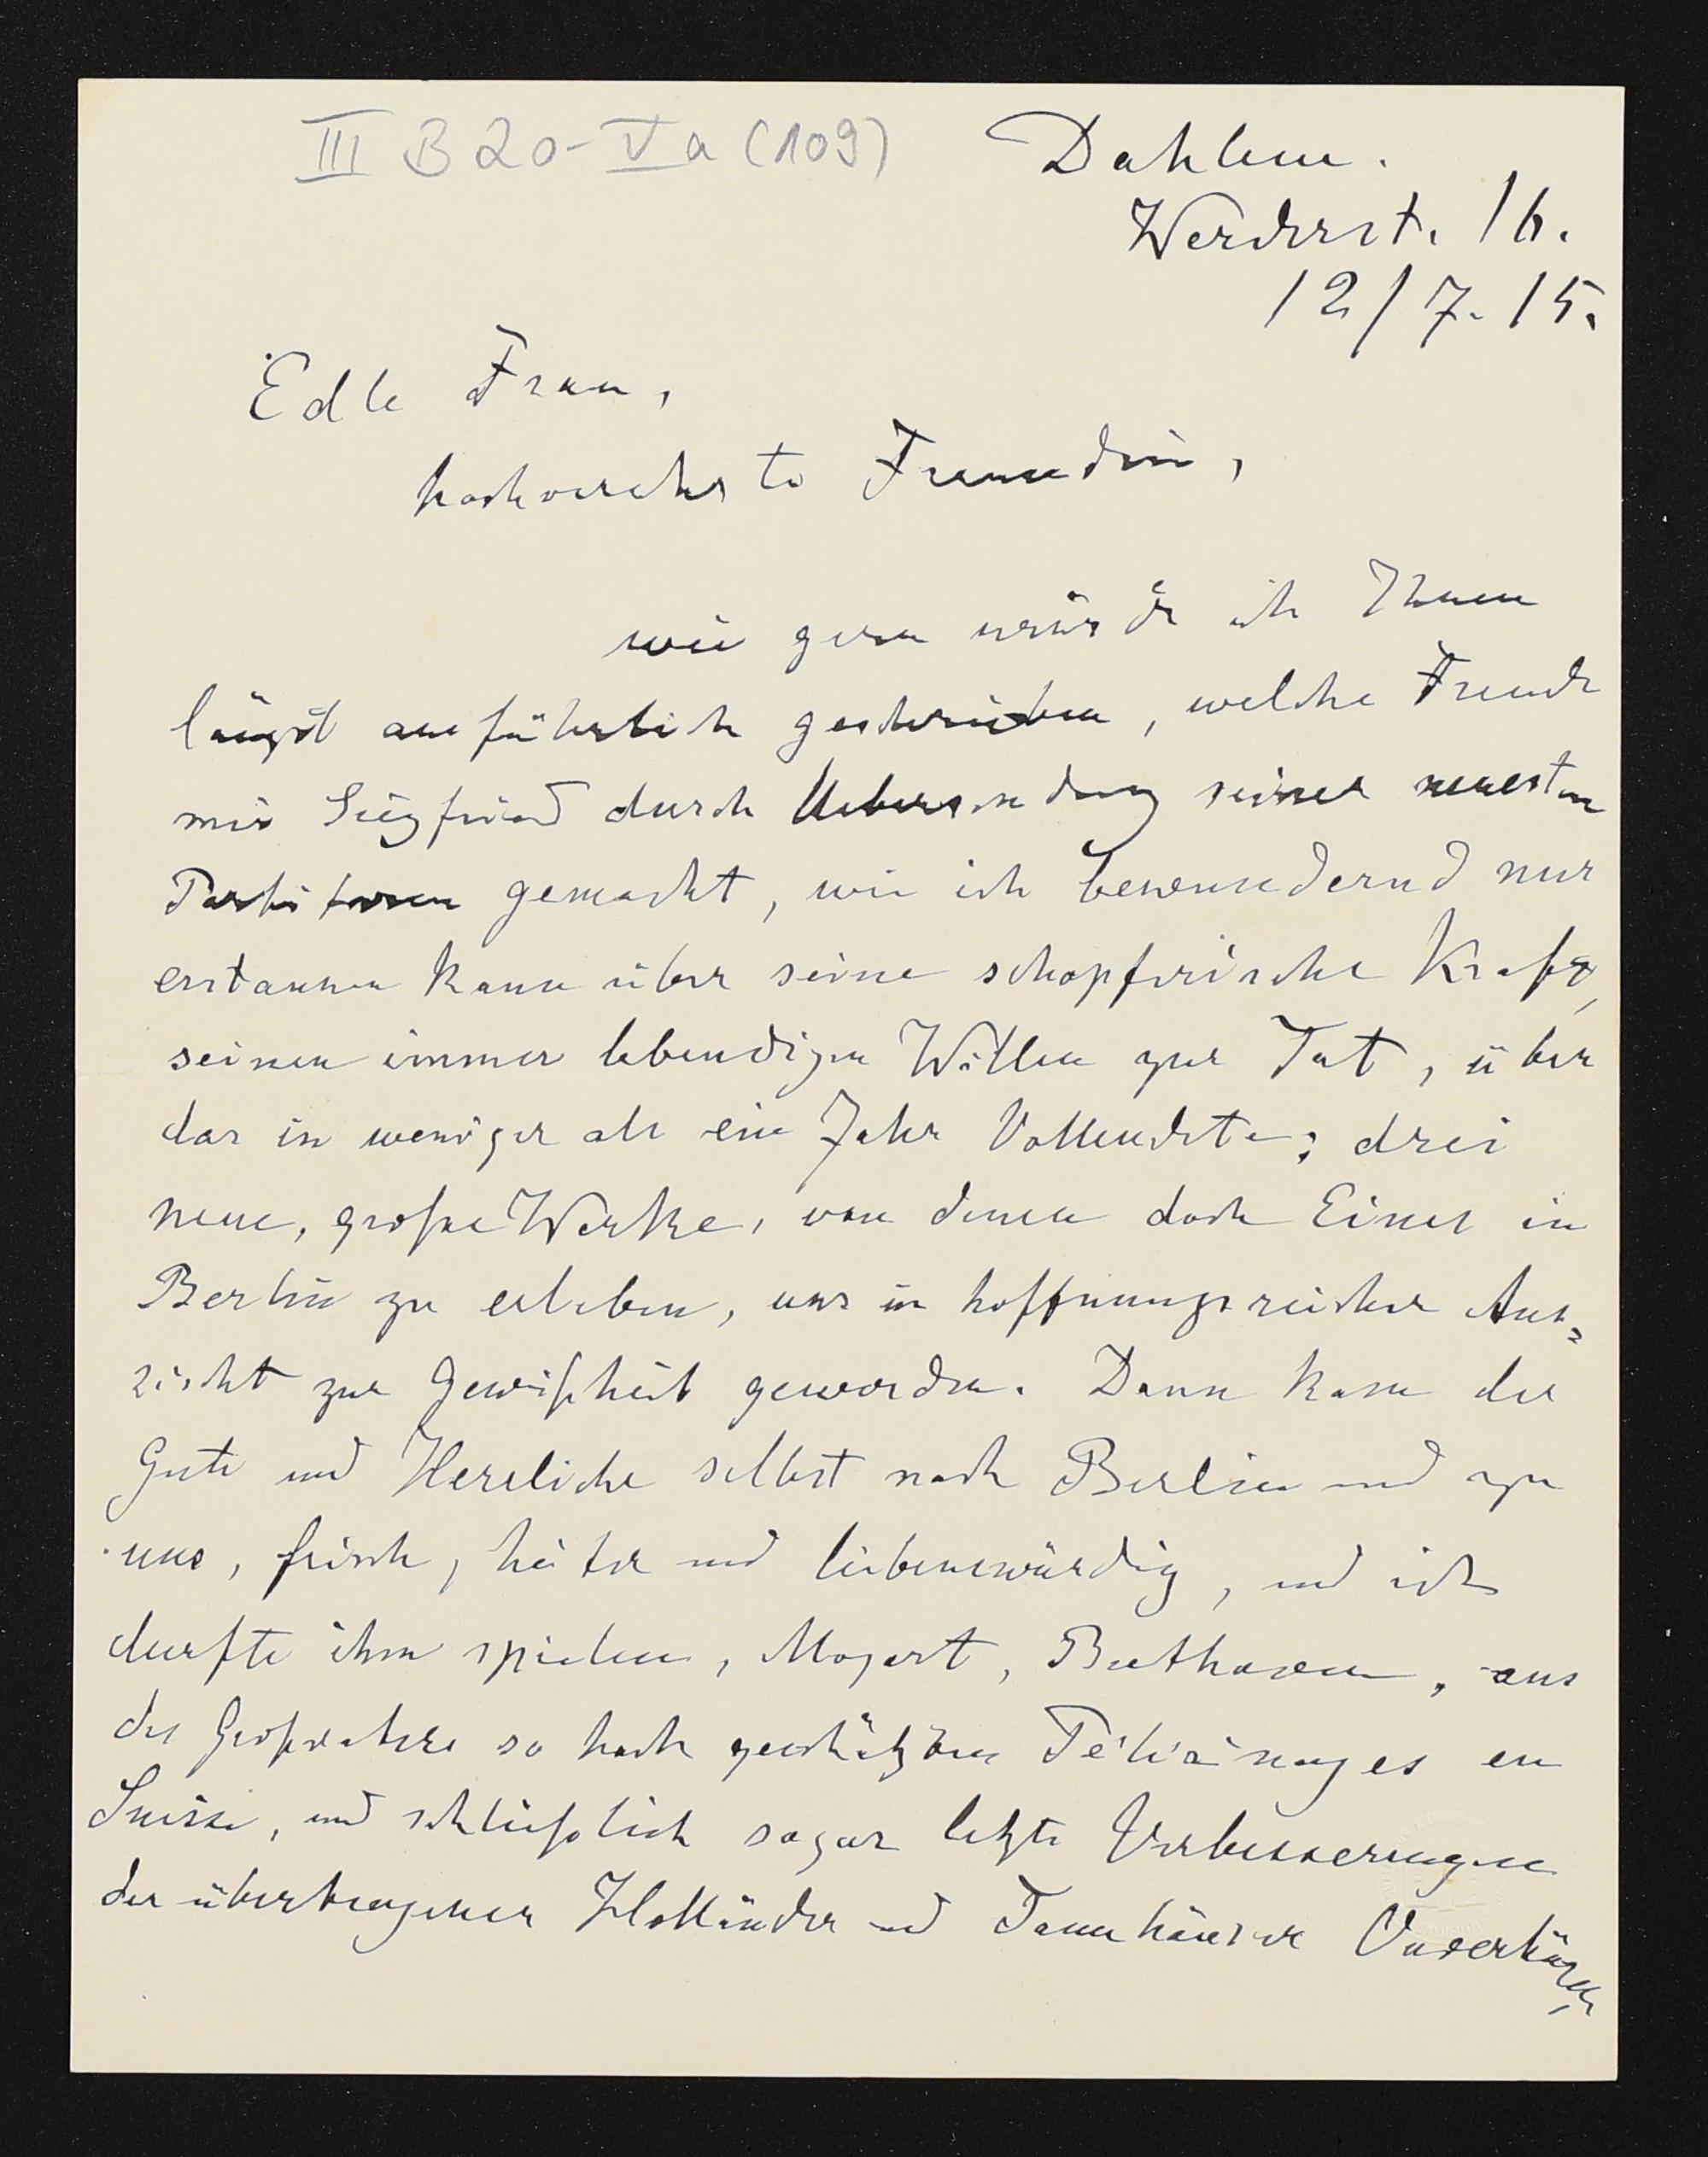 III B 20-Va (109)
Dahlem.
Werderst. 16.
12/7. 15.
Edle Frau,
hochverehrte Freundin,
wie gern würde ich Ihnen
längst ausführlich geschrieben, welche Freude
mir Siegfried durch Uebersendung seiner neuesten
Partituren gemacht, wie ich bewundernd nur
erstaunen kann über seine schöpferische Kraft,
seinen immer lebendigen Willen zur Tat, über
das in weniger als ein Jahr Vollendete; drei
neue, große Werke, von denen doch Eines in
Berlin zu erleben, uns in hoffnungsreicher Aus-
sicht zur Gewißheit geworden. Dann kam der
Gute und Herrliche selbst nach Berlin und zu
uns, frisch, heiter und liebenswürdig, und ich
durfte ihm spielen, Mozart, Beethoven, aus
des Großvaters so hoch geschätzten Pélérinages en
Suisse, und schließlich sogar letzte Verbesserungen
der übertragenen Holländer und Tannhäuser Ouverturen,